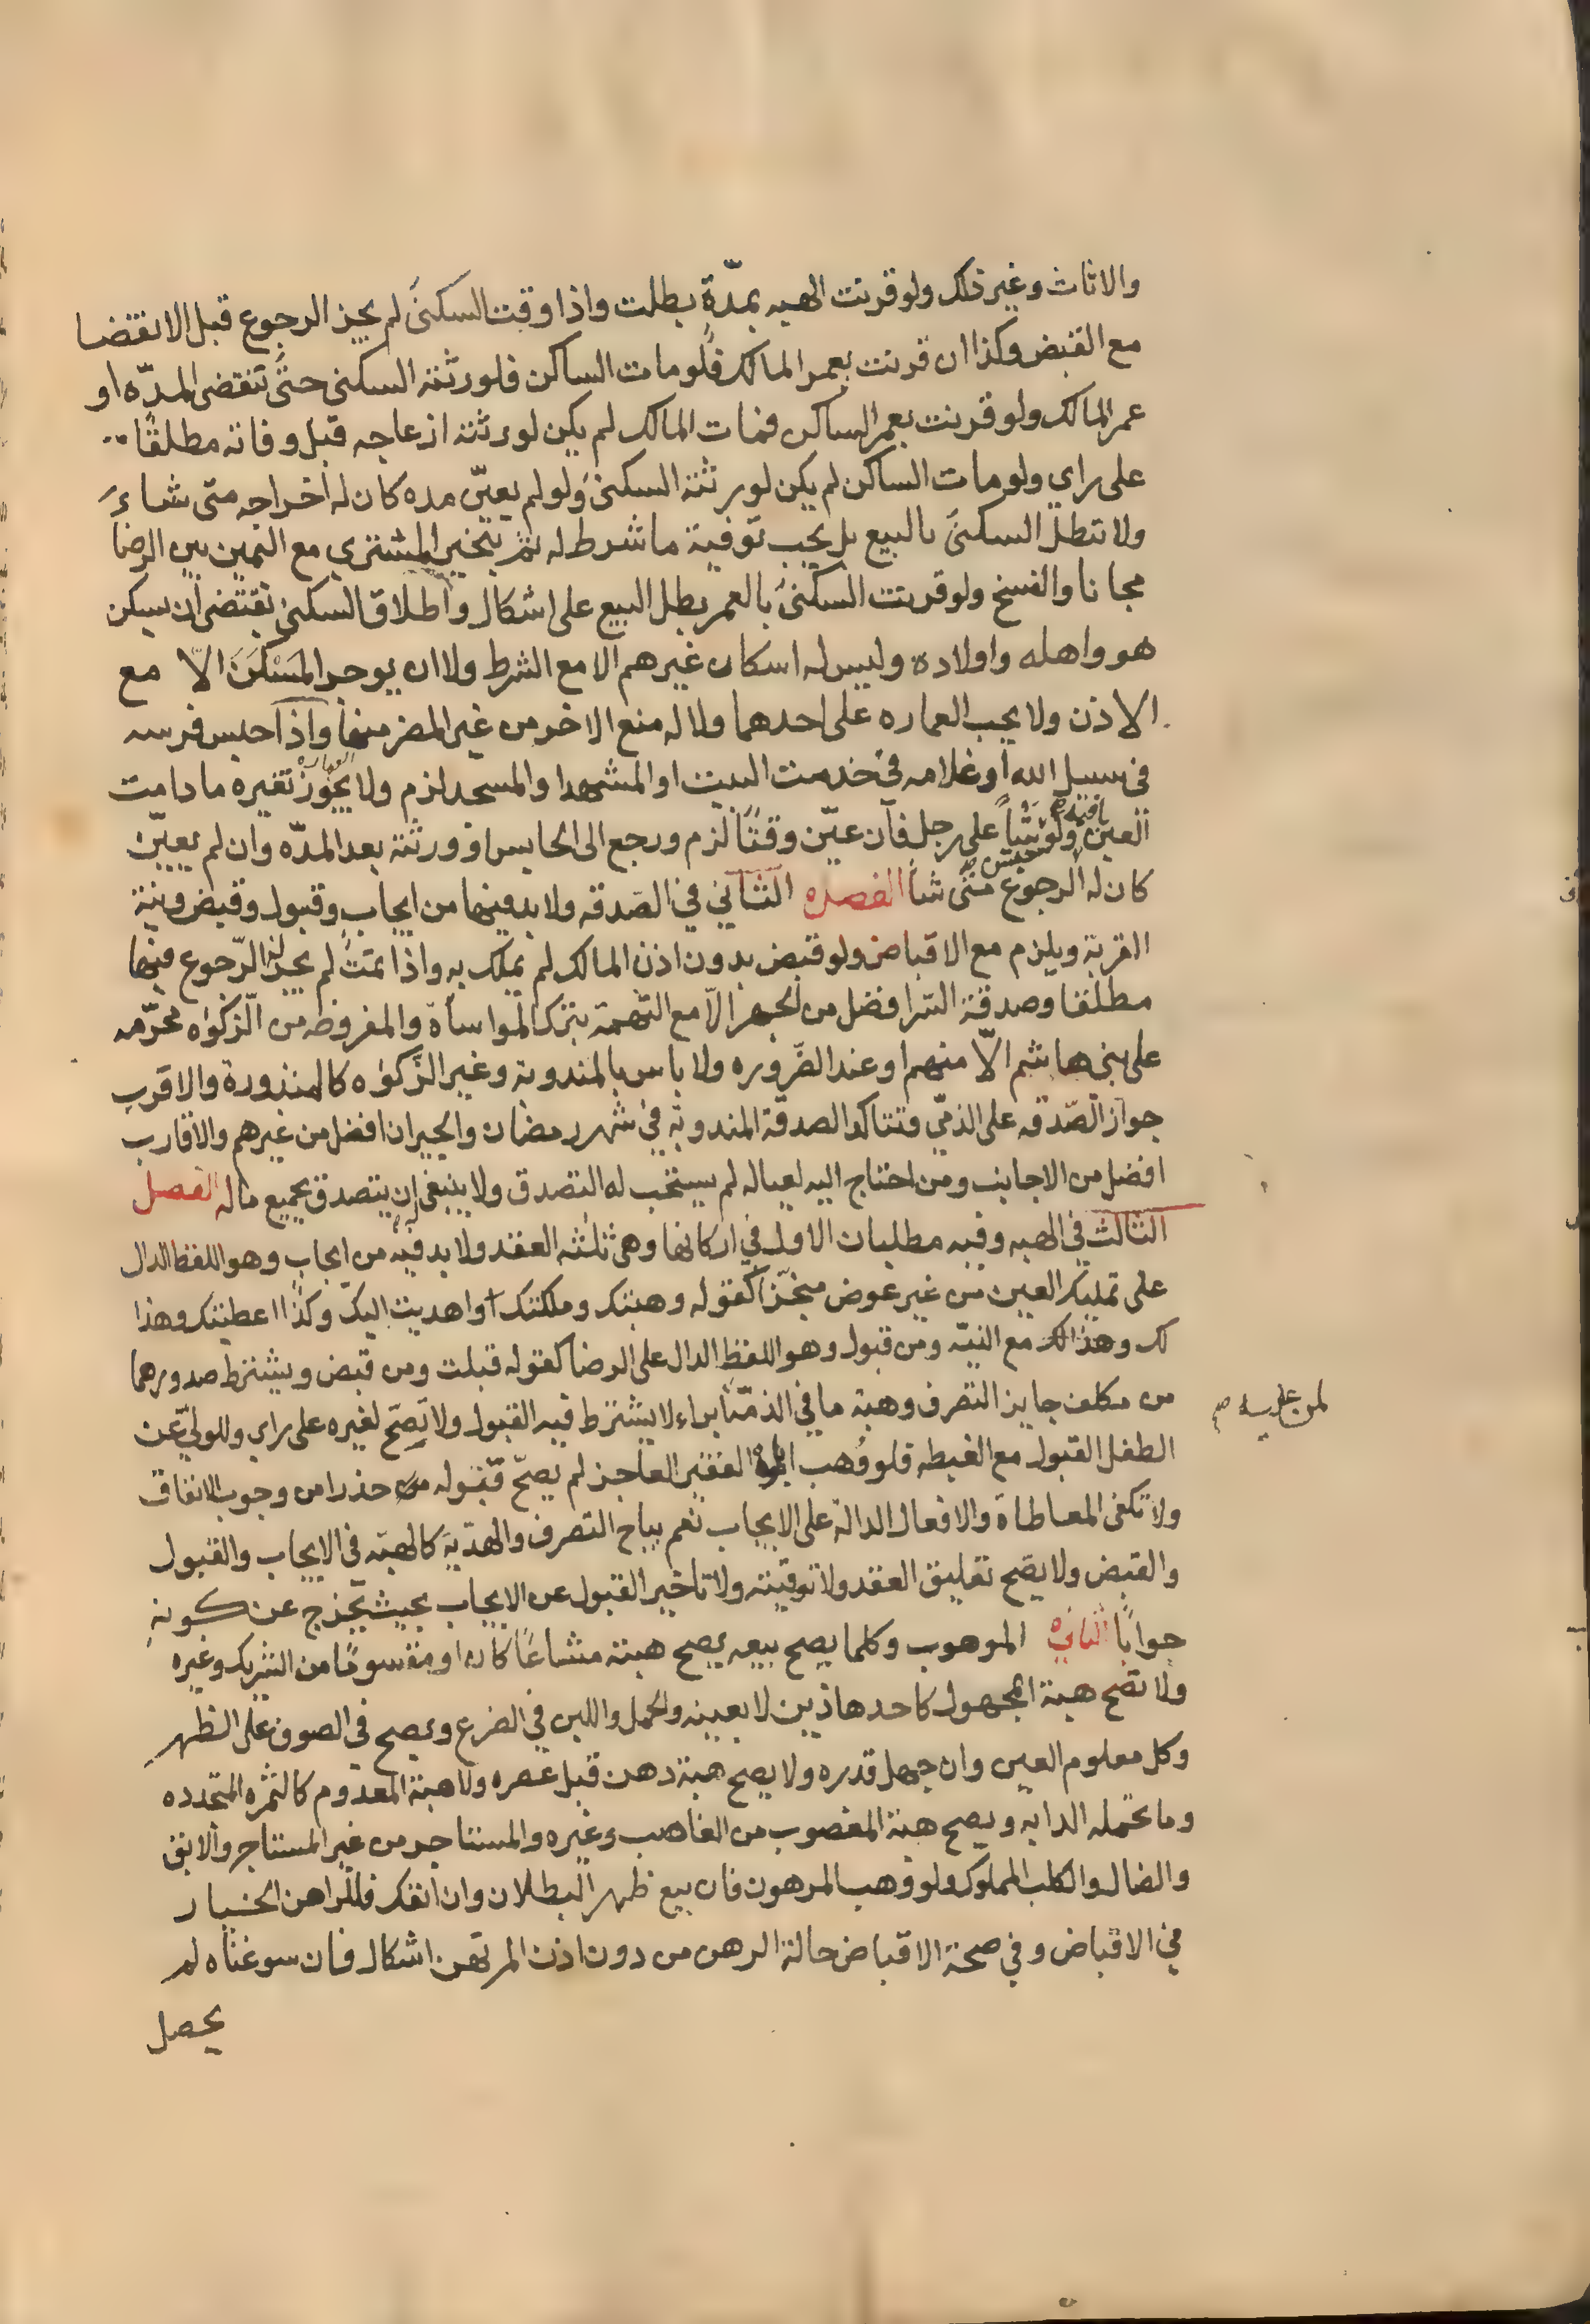 والاثاث وغير ذلك ولو قرنت الهبه بمدّة بطلت واذا وقت السكنىٰ لم يجز الرجوع قبل الانقضا
مع القبض وكذا ان قرنت بعمر المالك فلو مات الساكن فلورثته السكنى حتىٰ تنقضى المدّه او
عمر المالك ولو قرنت بعمر الساكن فمات المالك لم يكن لورثته ازعاجه قبل وفاته مطلقًا
على راي ولو مات الساكن لم يكن لورثته السكنىٰ ولو لم يعيّن مده كان له اخراجه متى شاءَ
ولا تبطل السكنىٰ بالبيع بل يجب توفية ما شرط له ثم يتخير المشتري مع بين الرضا
مجانا والفسخ ولو قرنت السكنىٰ بالعمر بطل البيع على اشكال واطلاق السكنىٰ يقتضى ان يسكن
هو واهله واولاده وليس له اسكان غيرهم الا مع الشرط ولا ان يوجر المَسْكَنَ الّا مع
الاذن ولا يجب العماره على احدهما ولا له منع الاخر من غير المضر منها واذا حبس فرسه
فى سبيل الله او غلامه فى خدمت البيت او المشهد او المسجد لزم ولا يجوز تغيره ما دامت
العين باقيه ولو حبس شيأً على رجل فان عيّن وقتًا لزم ورجع الى الحابس او ورثته بعد المدّه وان لم يعيّن
كان له الرجوع متىٰ شأ الفصل الثاني في الصّدقه ولا بد فيها من ايجاب وقبول وقبض ونية
القربة ويلزم مع الاقباض ولو قبض بدون اذن المالك لم يملك به واذا تمت لم يجز له الرّجوع فيها
مطلقا وصدقة السّر افضل من الجهر الّا مع التّهمة بترك المواساة والمفروضه من الزّكوٰه محرّمه
على بنى هاشم الّا منهم او عند الضّروره ولا باس بالمندوبة وغير الزّكوٰه كالمنذورة والاقرب
جواز الصّدقه على الذمّي وتتاكد الصدقة المندوبة في شهر رمضان والجيران افضل من غيرهم والاقارب
افضل من الاجانب ومن احتاج اليه لعياله لم يستحب له التصدق ولا ينبغى ان يتصدق بجميع ماله الفصل
الثالث في الهبه وفيه مطلبان الاول في اركانها وهى ثلثه العقد ولا بد فيه من ايجاب وهو اللفظ الدال
على تمليك العين من غير عوض منجّزا كقوله وهبتك وملكتك او اهديت اليك وكذا اعطيتك وهذا
لك وهذا لك مع النيّه ومن قبول وهو اللفظ الدال على الرضا كقوله قبلت ومن قبض ويشترط صدورهما
من مكلف جايز التصرف وهبة ما في الذمّة ابراء لا يشترط فيه القبول ولا تصّح لغيره على راي وللوليّ عن
لمن عليه صح
الطفل القبول مع الغبطه فلو وُهب ابوه الفقير العاجز لم يصحّ قبوله حذرا من وجوب الانفاق
ولا تكفى المعاطاة والافعال الدالة على الايجاب نعم يباح التصرف والهديّة كالهبّه في الايجاب والقبول
والقبض ولا يصّح تعليق العقد ولا توقيته ولا تاخير القبول عن الايجاب بحيث يخرج عن كونه
جوابًا الثاني الموهوب وكلما يصح بيعه يصح هبته مشاعًا كان او مقسومًا من الشريك وغيره
ولا تصّح هبة المجهول كاحد هاذين لا بعينه والحمل واللبن في الضرع ويصح في الصوف على الظهر
وكل معلوم العين وان جهل قدره ولا يصح هبة دهن قبل عصره ولا هبة المعدوم كالثمره المتجدده
وما تحمله الدابه ويصح هبة المغصوب من الغاصب وغيره والمستاجر من غير المستاجر والابق
والضال والكلب المملوك ولو وهب المرهون فان بيع ظهر البطلان وان انفك فللراهن الخيار
في الاقباض وفي صحة الاقباض حالة الرهن من دون اذن المرتهن اشكال فان سوغناه لم
يحصل